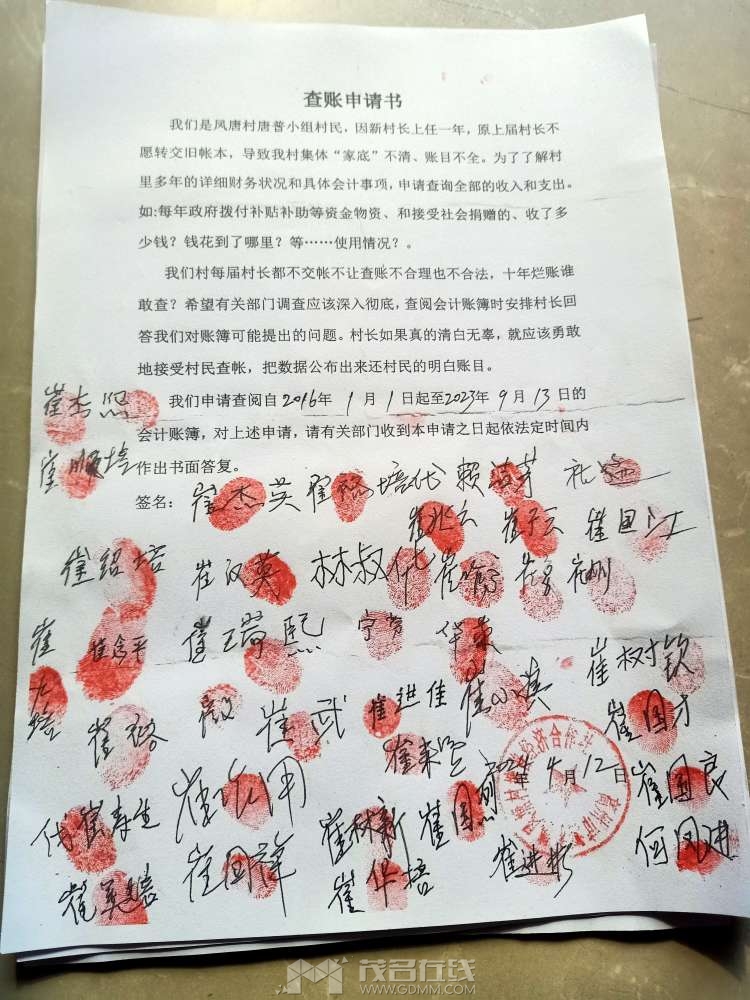 查账申请书
我们是凤唐村唐普小组村民，因新村长上任一年，原上届村长不
愿转交旧帐本，导致我村集体“家底”不清、账目不全。为了了解村
里多年的详细财务状况和具体会计事项，申请查询全部的收入和支出。
如:每年政府拨付补贴补助等资金物资、和接受社会捐赠的、收了多
少钱？钱花到了哪里？等……使用情况？。
我们村每届村长都不交帐不让查账不合理也不合法，十年烂账谁
敢查？希望有关部门调查应该深入彻底，查阅会计账簿时安排村长回
答我们对账簿可能提出的问题。村长如果真的清白无辜，就应该勇敢
地接受村民查帐，把数据公布出来还村民的明白账目。
我们申请查阅自2016年 1月1日起至2023年 9月13日的
会计账簿，对上述申请，请有关部门收到本申请之日起依法定时间内
作出书面答复。
崔杰照
崔顺培
签名： 崔杰英
崔北云 崔子云 崔国江
崔绍培 崔汉英 林叔
崔念平 崔瑞熙 华东 崔树钦
崔九培
崔武 崔进佳 崔国才
经济合作社
2024年4月12日
崔国良
代崔寿生 崔林新 何凤进
崔英 崔国祥 崔华培 崔进彬
茂名在线
WWW.GDMM.COM